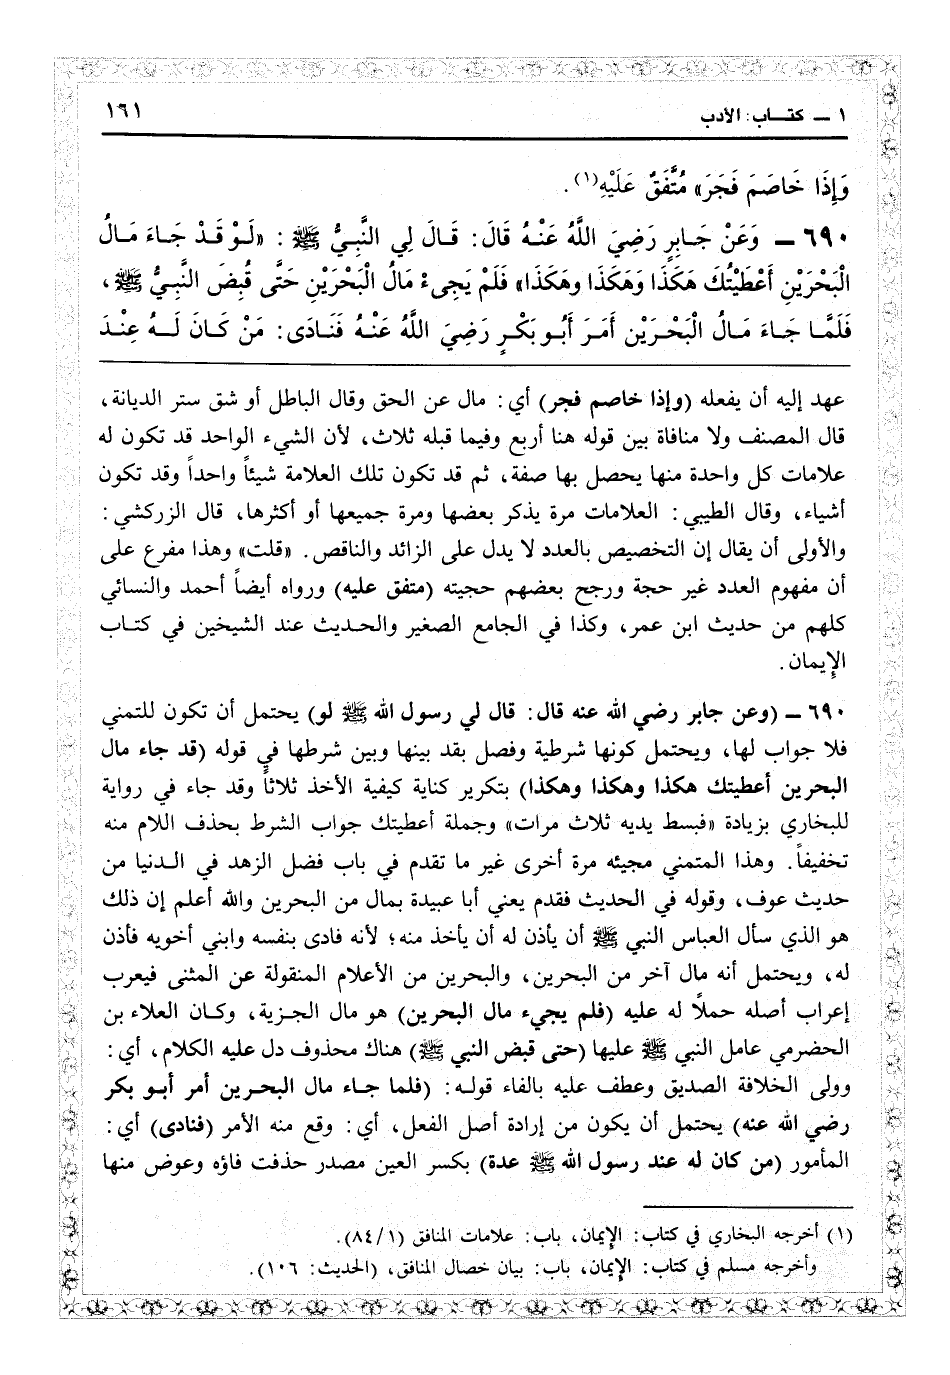 ١ ـ كتـــاب: الأدب
١٦١
وَإِذَا خَاصَمَ فَجَرَ» مُتَّفَقٌ عَلَيْهِ(١).
٦٩٠ ـ وَعَنْ جَـابِرٍ رَضِيَ اللَّهُ عَنْـهُ قَالَ: قَـالَ لِي النَّبِـيُّ ﷺ: «لَـوْ قَـدْ جَـاءَ مَـالُ
الْبَحْرَيْنِ أَعْطَيْتُكَ هَكَذَا وَهَكَذَا وهَكَذَا» فَلَمْ يَجِىءْ مَالُ الْبَحْرَيْنِ حَتَّى قُبِضَ النَّبِيُّ ﷺ،
فَلَمَّا جَـاءَ مَـالُ الْبَحْـرَيْنِ أَمَـرَ أَبُـو بَكْـرٍ رَضِيَ اللَّهُ عَنْـهُ فَنَـادَى: مَـنْ كَـانَ لَـهُ عِنْـدَ
عهد إليه أن يفعله (وإذا خاصم فجر) أي: مال عن الحق وقال الباطل أو شق ستر الديانة،
قال المصنف ولا منافاة بين قوله هنا أربع وفيما قبله ثلاث، لأن الشيء الواحد قد تكون له
علامات كل واحدة منها يحصل بها صفة، ثم قد تكون تلك العلامة شيئاً واحداً وقد تكون
أشياء، وقال الطيبي: العلامات مرة يذكر بعضها ومرة جميعها أو أكثرها، قال الزركشي:
والأولى أن يقال إن التخصيص بالعدد لا يدل على الزائد والناقص. «قلت» وهذا مفرع على
أن مفهوم العدد غير حجة ورجح بعضهم حجيته (متفق عليه) ورواه أيضاً أحمد والنسائي
كلهم من حديث ابن عمر، وكذا في الجامع الصغير والحـديث عند الشيخين في كتـاب
الإيمان.
٦٩٠ ـ (وعن جابر رضي الله عنه قال: قال لي رسول الله ﷺ لو) يحتمل أن تكون للتمني
فلا جواب لها، ويحتمل كونها شرطية وفصل بقد بينها وبين شرطها في قوله (قد جاء مال
البحرين أعطيتك هكذا وهكذا وهكذا) بتكرير كناية كيفية الأخذ ثلاثاً وقد جاء في رواية
للبخاري بزيادة «فبسط يديه ثلاث مرات» وجملة أعطيتك جواب الشرط بحذف اللام منه
تخفيفاً. وهذا المتمني مجيئه مرة أخرى غير ما تقدم في باب فضل الزهد في الـدنيا من
حديث عوف، وقوله في الحديث فقدم يعني أبا عبيدة بمال من البحرين والله أعلم إن ذلك
هو الذي سأل العباس النبي ﷺ أن يأذن له أن يأخذ منه؛ لأنه فادى بنفسه وابني أخويه فأذن
له، ويحتمل أنه مال آخر من البحرين، والبحرين من الأعلام المنقولة عن المثنى فيعرب
إعراب أصله حملاً له عليه (فلم يجيء مال البحرين) هو مال الجزية، وكـان العلاء بن
الحضرمي عامل النبي ﷺ عليها (حتى قبض النبي ﷺ) هناك محذوف دل عليه الكلام، أي:
وولى الخلافة الصديق وعطف عليه بالفاء قولـه: (فلما جـاء مال البحـرين أمر أبـو بكر
رضي الله عنه) يحتمل أن يكون من إرادة أصل الفعل، أي: وقع منه الأمر (فنادى) أي:
المأمور (من كان له عند رسول الله ﷺ عدة) بكسر العين مصدر حذفت فاؤه وعوض منها
(١) أخرجه البخاري في كتاب: الإيمان، باب: علامات المنافق (٨٤/١).
وأخرجه مسلم في كتاب: الإيمان، باب: بيان خصال المنافق، (الحديث: ١٠٦).